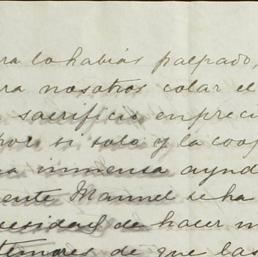 ra lo habías palpado,
ra nosotros colar el
sacrificio en preci
por si solo y la coop
na inmensa ayud
ente Manuel se ha
cesidad de hacer m
temores de que las